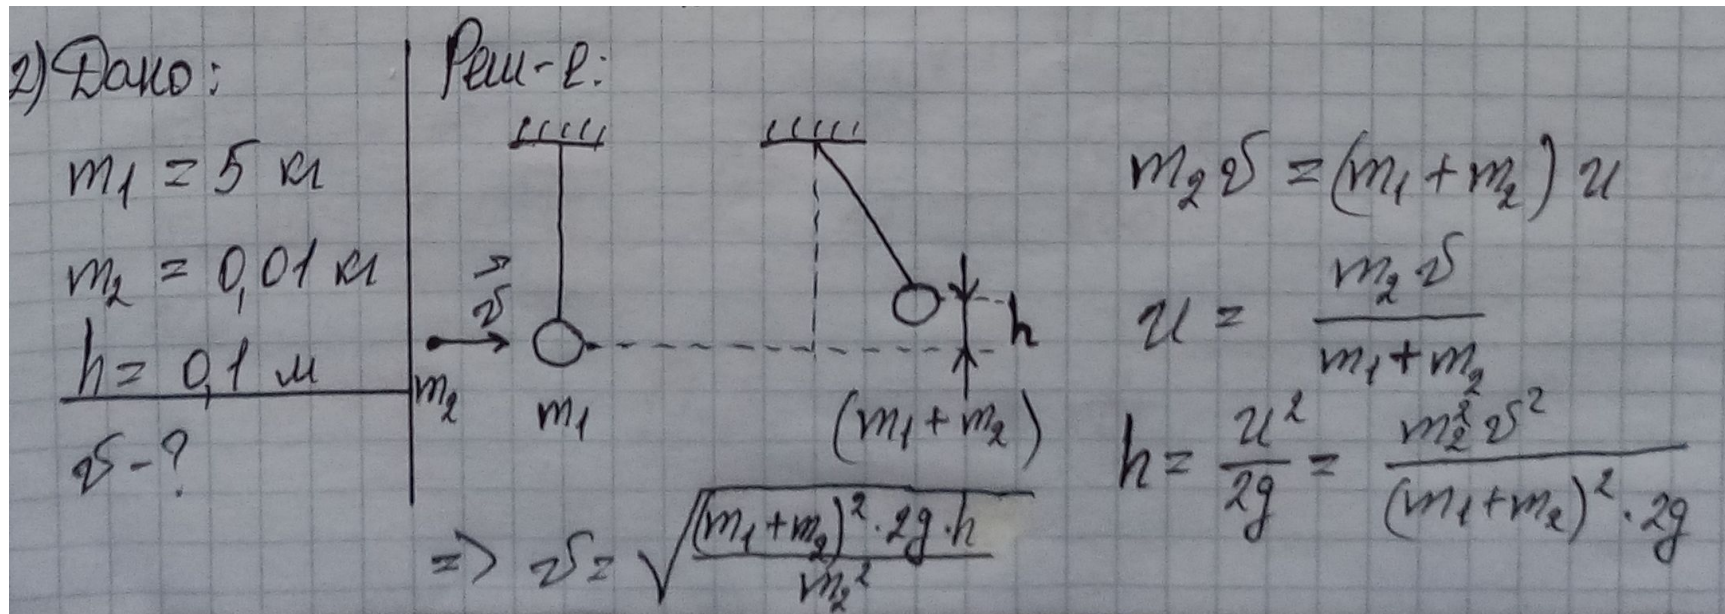 2) Дано:
m₁ = 5 кг
m₂ = 0,01 кг
h = 0,1 м
v - ?
Реш-е:
v⃗
m₂
m₁
h
(m₁ + m₂)
m₂v = (m₁ + m₂) u
u = m₂v / (m₁ + m₂)
h = u² / 2g = m₂²v² / ((m₁ + m₂)² · 2g)
=> v = √((m₁ + m₂)² · 2g · h / m₂²)